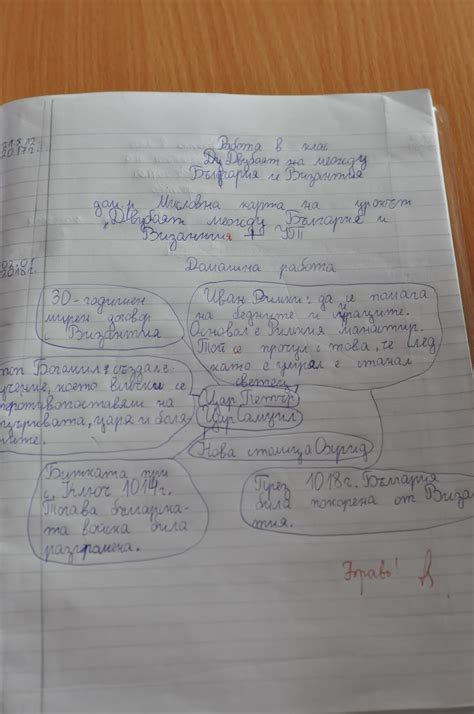 2017г.
Работа в клас
Ду Двубоят на между
България и Византия
дом. р. Мисловна карта на урокът
"Двубоят между България и
Византия +
2018г.
Домашна работа
30-годишен
мирен договор
Византия
Иван Рилски: да се помага
на бедните и
Основал е Рилския манастир.
Той се прочул с това, че след
като е умрял е станал
светец
поп Богомил: създал е
учение, което всички се
противопоставяли на
църквата, царя и боля-
рите.
Цар Петър
Цар Самуил
Нова столица Охрид
Битката при
с. Ключ 1014г.
Тогава българска-
та войска била
разгромена.
През 1018г. България
била покорена от Виза
тия.
Браво!